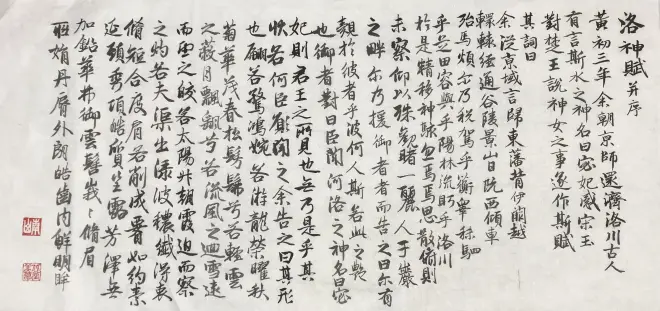 洛神賦 并序
黃初三年余朝京師還濟洛川古人
有言斯水之神名曰宓妃感宋玉
對楚王說神女之事遂作斯賦
其詞曰
余從京域言歸東藩背伊闕越
轘轅經通谷陵景山日既西傾車
殆馬煩尔乃稅駕乎蘅皋秣駟
乎芝田容與乎陽林流眄乎洛川
於是精移神駭忽焉思散俯則
未察仰以殊觀睹一麗人于巖
之畔尔乃援御者而告之曰尔有
覿於彼者乎彼何人斯若此之艷
也御者對曰臣聞河洛之神名曰宓
妃則君王之所見也無乃是乎其
狀若何臣願聞之余告之曰其形
也翩若驚鴻婉若游龍榮曜秋
菊華茂春松髣髴兮若輕雲
之蔽月飄颻兮若流風之迴雪遠
而望之皎若太陽升朝霞迫而察
之灼若芙蕖出淥波穠纖得衷
脩短合度肩若削成腰如約素
延頸秀項皓質呈露芳澤無
加鉛華弗御雲髻峩〻脩眉
聯娟丹脣外朗皓齒內鮮明眸